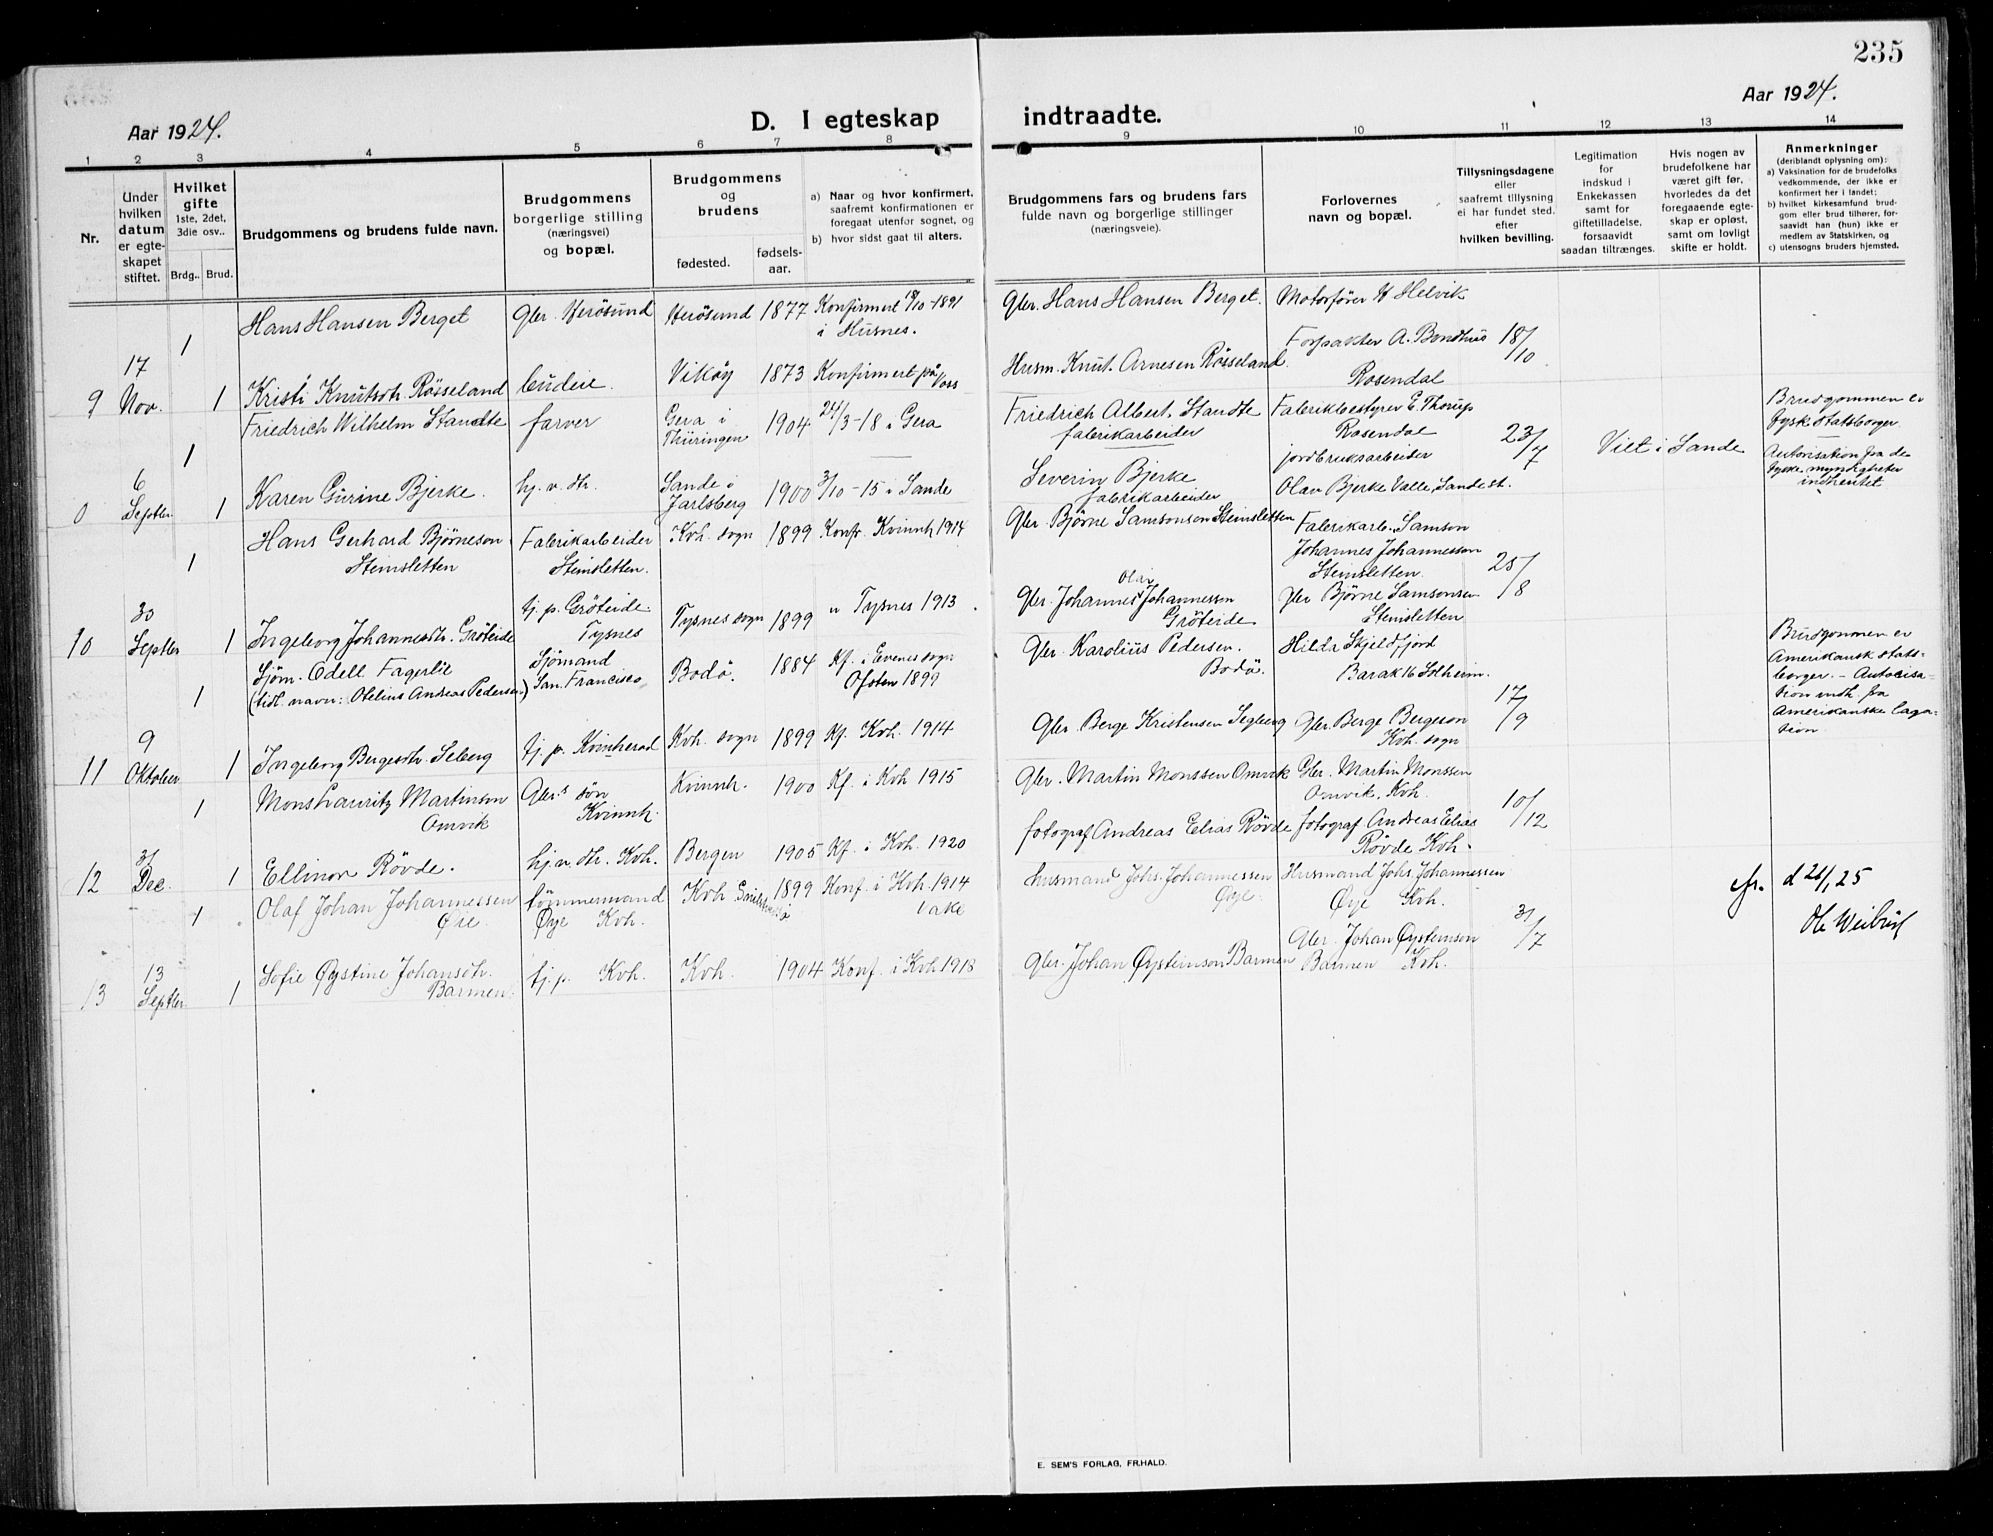 235
Aar 1924.
D. I egteskap indtraadte.
Aar 1924.
1 2 3 4 5 6 7 8 9 10 11 12 13 14
Nr.
Under hvilken datum er egteskapet stiftet.
Hvilket gifte
1ste, 2det, 3die osv..
Brdg.. Brud.
Brudgommens og brudens fulde navn.
Brudgommens borgerlige stilling (næringsvei) og bopæl.
Brudgommens og brudens
fødested.
fødsels-aar.
a) Naar og hvor konfirmert, saafremt konfirmationen er foregaat utenfor sognet, og
b) hvor sidst gaat til alters.
Brudgommens fars og brudens fars fulde navn og borgerlige stillinger (næringsveie).
Forlovernes navn og bopæl.
Tillysningsdagene eller saafremt tillysning ei har fundet sted. efter hvilken bevilling.
Legitimation for indskud i Enkekassen samt for giftetilladelse, forsaavidt saadan tiltrænges.
Hvis nogen av brudefolkene har været gift før, hvorledes da det foregaaende egteskap er opløst, samt om lovligt skifte er holdt.
Anmerkninger
(deriblandt oplysning om):
a) Vaksination for de brudefolks vedkommende, der ikke er konfirmert her i landet;
b) hvilket kirkesamfund brudgom eller brud tilhører, forsaavidt han (hun) ikke er medlem av Statskirken, og
c) utensogns bruders hjemsted.
1 Hans Hansen Berget Gbr. Herösund Herösund 1877 Konfirmert 18/10-1891 i Husnes. Gbr. Hans Hansen Berget. Motorfører H Helvik
Forpakter A. Bondhus 18/10
9 17 Nov. 1 Kristi Knutsdt. Røisseland budeie. Vikøy 1873 Konfirmert på Voss Husm. Knut Arnesen Røisseland. Rosendal
1 Friedrich Wilhelm Standte farver Gera i Thüringen 1904 24/3-18 i Gera Friedrich Albert Standte fabrikarbeider Fabrikbestyrer E. Thorup Rosendal 23/7 Viet i Sande Brudgommen er tysk statsborger.
0 6 Septbr. 1 Karen Gurine Bjerke. hj. v. dt. Sande i Jarlsberg 1900 3/10-15 i Sande Severin Bjerke fabrikarbeider jordbruksarbeider Olav Bjerke Valle, Sande st. Autorisation fra de tyske myndigheter indhentet
1 Hans Gerhard Bjørneson Steinsletten Fabrikarbeider Steinsletten. Kvh. sogn 1899 Konfr. Kvinnh 1914 Gbr. Bjørne Samsonsen Steinsletten Fabrikarb. Samson Johannes Johannesson Steinsletten. 25/8
10 30 Septbr 1 Ingeborg Johannesdtr. Gröteide tj. p. Gröteide. Tysnes Tysnes sogn 1899 " Tysnes 1913 Gbr. Johannes Olai Johannessen Gröteide Gbr Bjørne Samsonsen Steinsletten
1 Sjöm. Odell Fagerlie (tidl. navn: Otelius Andreas Pedersen) Sjömand San. Francisco Bodö. 1884 Kf. i Evenes sogn Ofoten 1899 Gbr. Karolius Pedersen. Bodö. Hilda Skjeldfjord Barak 16 Solheim. 17/9 Brudgommen er Amerikansk statsborger. - Autorisation indh. fra Amerikanske Legation.
11 9 Oktober 1 Ingeborg Bergesdtr. Seberg tj. p. Kvinherad Kvh. sogn 1899 Kf. Kvh. 1914 Gbr Berge Kristensen Segberg Gbr. Berge Bergeson Kvh. sogn
1 Mons Lauritz Martinson Omvik Gbr.s søn Kvinnh. Kvinnh. 1900 Kf. i Kvh 1915 Gbr. Martin Monssen Omvik Gbr. Martin Monssen Omvik. Kvh. 10/12
12 31 Dec. 1 Ellinor Rövde. hj. v. dtr. Kvh. Bergen 1905 Kf. i Kvh. 1920 fotograf Andreas Elias Rövde fotograf Andreas Elias Rövde Kvh.
1 Olaf Johan Johannessen Øie tömmermand Øye Kvh. Kvh 1899 Konf. i Kvh. 1914 Husmand Johs. Johannessen Øye. Husmand Johs. Johannessen Øye Kvh. 31/7 cfr. d 21/1 25
13 13 Septbr 1 Sofie Øystine Johansdtr. Barmen. tj. p. Kvh. Kvh. 1904 Konf. i Kvh 1918 Gbr. Johan Øysteinson Barmen Gbr. Johan Øysteinson Barmen Kvh.
E. SEM'S FORLAG, FR.HALD.